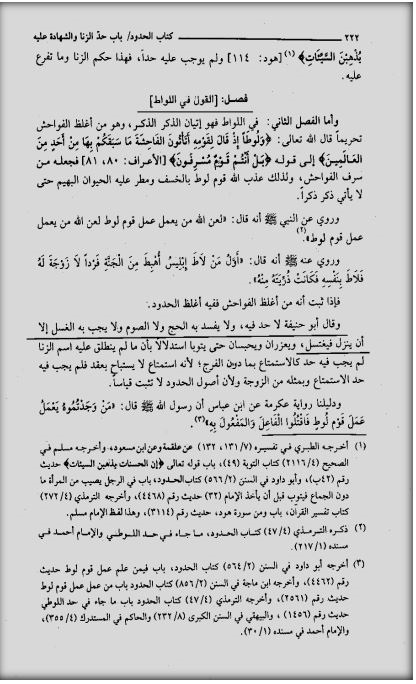 ٢٢٢ كتاب الحدود/ باب حدّ الزنا والشهادة عليه
يُذْهِبْنَ السَّيِّئَاتِ﴾ (١) [هود: ١١٤] ولم يوجب عليه حداً، فهذا حكم الزنا وما تفرع
عليه.
فصـل: [القول في اللواط]
وأما الفصل الثاني: في اللواط فهو إتيان الذكر الذكر، وهو من أغلظ الفواحش
تحريماً قال الله تعالى: ﴿وَلُوطاً إِذْ قَالَ لِقَوْمِهِ أَتَأْتُونَ الفَاحِشَةَ مَا سَبَقَكُمْ بِهَا مِنْ أَحَدٍ مِنَ
العَالَمِينَ﴾ إلى قوله ﴿بَلْ أَنْتُمْ قَوْمٌ مُسْرِفُونَ﴾ [الأعراف: ٨٠، ٨١] فجعله من
سرف الفواحش، ولذلك عذب الله قوم لوط بالخسف ومطر عليه الحيوان البهيم حتى
لا يأتي ذكر ذكراً.
وروي عن النبي ﷺ أنه قال: «لعن الله من يعمل عمل قوم لوط لعن الله من يعمل
عمل قوم لوط»(٢).
وروي عنه ﷺ أنه قال: «أَوَّلُ مَنْ لاَطَ إِبْلِيسُ أُهْبِطَ مِنَ الجَنَّةِ فَرْداً لاَ زَوْجَةَ لَهُ
فَلاَطَ بِنَفْسِهِ فَكَانَتْ ذُرِّيَّتَهُ مِنْهُ».
فإذا ثبت أنه من أغلظ الفواحش ففيه أغلظ الحدود.
وقال أبو حنيفة لا حد فيه، ولا يفسد به الحج ولا الصوم ولا يجب به الغسل إلا
أن ينزل فيغتسل، ويعزران ويحبسان حتى يتوبا استدلالاً بأن ما لم ينطلق عليه اسم الزنا
لم يجب فيه حد كالاستمتاع بما دون الفرج؛ لأنه استمتاع لا يستباح بعقد فلم يجب فيه
حد الاستمتاع وبمثله من الزوجة ولأن أصول الحدود لا تثبت قياساً.
ودليلنا رواية عكرمة عن ابن عباس أن رسول الله ﷺ قال: «مَنْ وَجَدْتُمُوهُ يَعْمَلُ
عَمَلَ قَوْمِ لُوطٍ فَاقْتُلُوا الْفَاعِلَ وَالمَفْعُولَ بِهِ»(٣).
(١) أخرجه الطبري في تفسيره (١٣١/٧، ١٣٢) عن علقمة وعن ابن مسعود، وأخرجه مسلم في
الصحيح (٢١١٦/٤) كتاب التوبة (٤٩)، باب قوله تعالى ﴿إن الحسنات يذهبن السيئات﴾ حديث
رقم (٤٢ب)، وأبو داود في السنن (٥٦٦/٢) كتاب الحدود، باب في الرجل يصيب من المرأة ما
دون الجماع فيتوب قبل أن يأخذ الإمام (٣٢) حديث رقم (٤٤٦٨)، وأخرجه الترمذي (٢٧٢/٤)
كتاب تفسير القرآن، باب ومن سورة هود، حديث رقم (٣١١٤)، وهذا لفظ الإمام مسلم.
(٢) ذكره الترمذي (٤٧/٤) كتاب الحدود، ما جاء في حد اللوطي والإمام أحمد في
مسنده (٢١٧/١).
(٣) أخرجه أبو داود في السنن (٥٦٤/٢) كتاب الحدود، باب فيمن علم عمل قوم لوط حديث
رقم (٤٤٦٢)، وأخرجه ابن ماجة في السنن (٨٥٦/٢) كتاب الحدود باب من عمل عمل قوم لوط
حديث رقم (٢٥٦١)، وأخرجه الترمذي (٤٧/٤) كتاب الحدود باب ما جاء في حد اللوطي
حديث رقم (١٤٥٦)، والبيهقي في السنن الكبرى (٢٣٢/٨) والحاكم في المستدرك (٣٥٥/٤)،
والإمام أحمد في مسنده (٣٠/١).